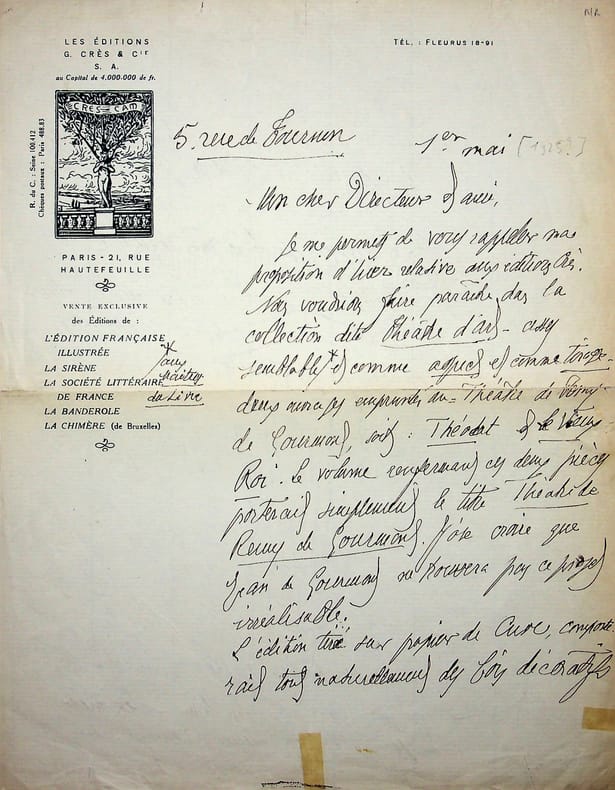 N/R
LES ÉDITIONS
G. CRÈS & Cie
S. A.
au Capital de 4.000.000 de fr.
TÉL. : FLEURUS 18-91
CRES CAM
R. du C. : Seine 100.412
Chèques postaux : Paris 488.83
PARIS - 21, RUE
HAUTEFEUILLE
VENTE EXCLUSIVE
des Éditions de :
L'ÉDITION FRANÇAISE
ILLUSTRÉE
LA SIRÈNE
LA SOCIÉTÉ LITTÉRAIRE
DE FRANCE
LA BANDEROLE
LA CHIMÈRE (de Bruxelles)
5. rue de Tournon
1er mai [1925?]
Mon cher Directeur et ami,
Je me permets de vous rappeler ma
proposition d'hier relative aux éditions Crès.
Nous voudrions faire paraître dans la
collection dite Théâtre d'art - assez
semblable * et comme aspect et comme tirage
* aux
Maîtres
du Livre
deux ouvrages empruntés au Théâtre de Remy
de Gourmont, soit : Théodat et le Vieux
Roi. Le volume renfermant ces deux pièces
porterait simplement le titre Théâtre de
Remy de Gourmont. J'ose croire que
Jean de Gourmont ne trouvera pas ce projet
irréalisable.
L'édition tirée sur papier de Cuve, comporte-
rait tout naturellement des bois décoratifs